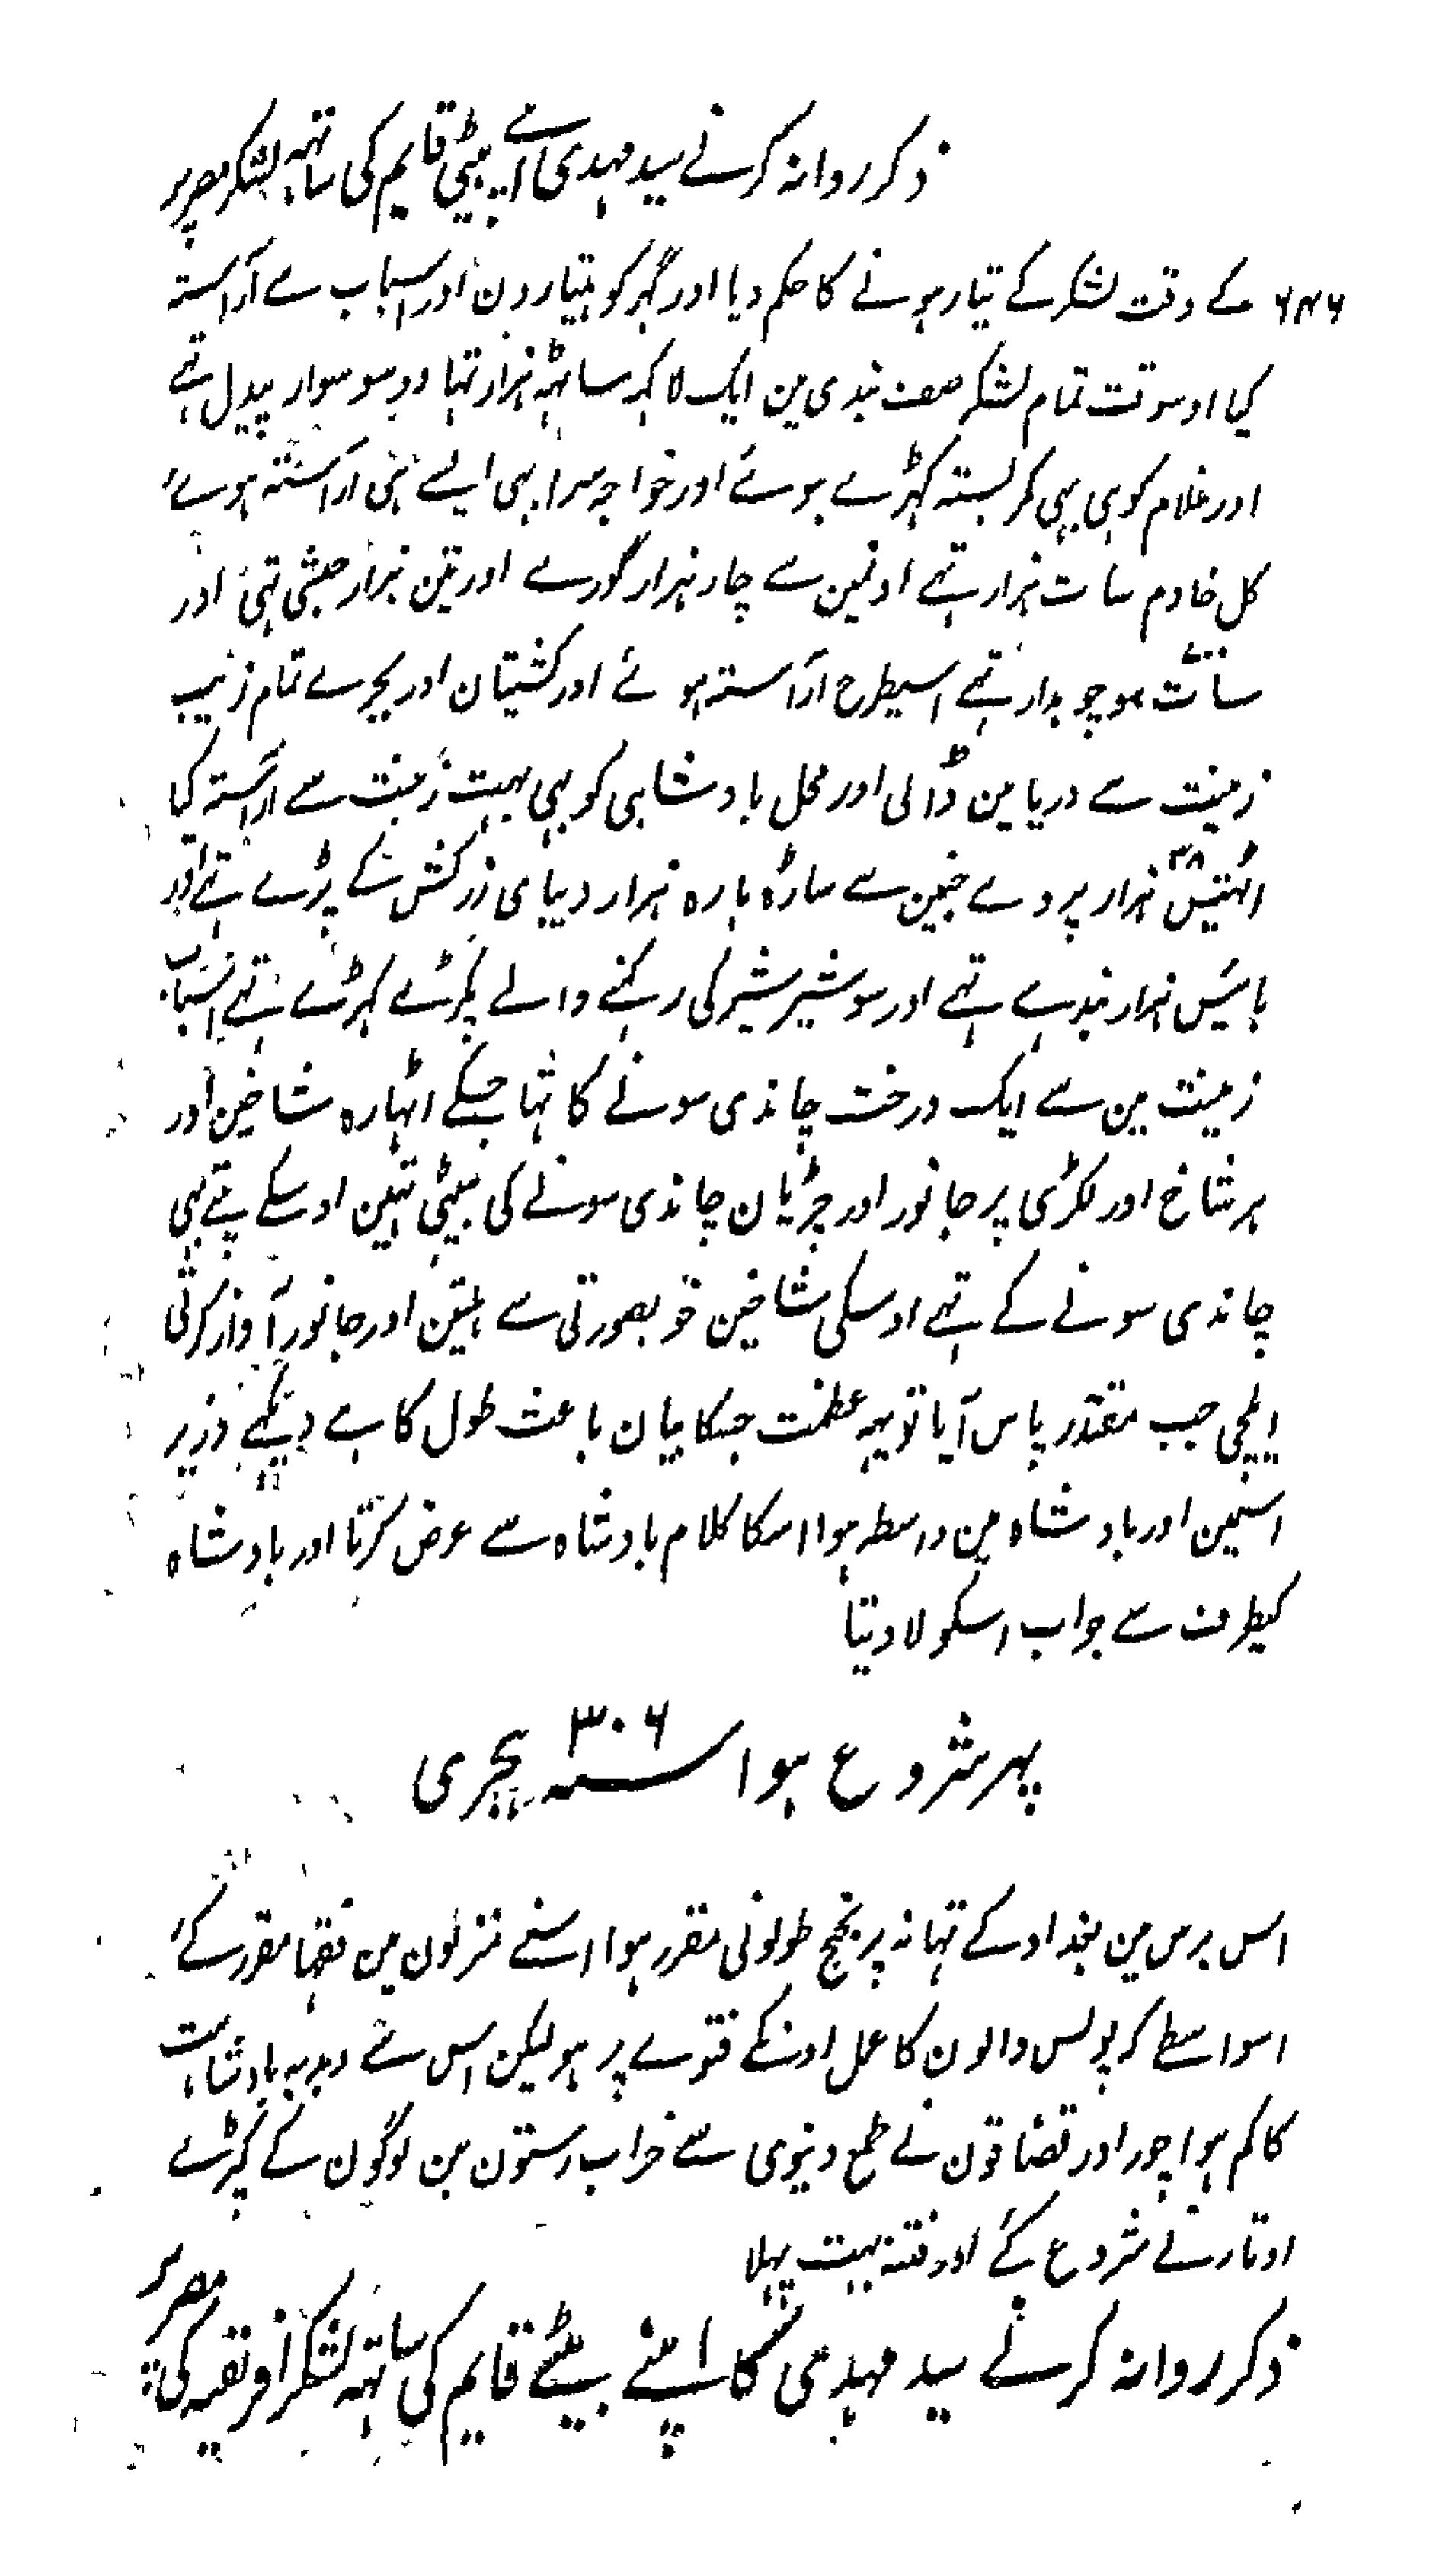 ذکر روانہ کرنے سید مہدی اپنے بیٹی قایم کی ساتہہ لشکر مصر پر
۶۴۶ کے وقت لشکر کے تیار ہونے کا حکم دیا اور گہر کو ہتیارون اور اسباب سے آراستہ
کیا اوسوقت تمام لشکر صف بندی مین ایک لاکہہ ساٹہہ ہزار تہا دو سو سوار پیدل تہے
اور غلام کوہی بہی کمر بستہ کہڑے ہوے اور خواجہ سرا بہی ایسے ہی آراستہ ہوے
کل خادم سات ہزار تہے اونین سے چار ہزار گورے اور تین ہزار حبشی تہی اور
سات سو چوبدار تہے اسیطرح آراستہ ہوئے اور کشتیان اور بجرے تمام زیب
زینت سے دریا مین ڈالی اور محل بادشاہی کو بہی بہت زینت سے آراستہ کیا
اٹہتیس ۳۸ ہزار پردے جنین سے ساڑہ بارہ ہزار دیبای زرکش کے پڑے تہے اور
بائیس ہزار بندہے تہے اور سو شیر شیر کی رکہنے والے پکڑے کہڑے تہے اسباب
زینت مین سے ایک درخت چاندی سونے کا تہا جسکے اٹہارہ شاخین اور
ہر شاخ اور لکڑی پر جانور اور چڑیان چاندی سونے کی بیٹہی تہین اوسکے پتے بہی
چاندی سونے کے تہے اوسکی شاخین خوبصورتی سے ہلتین اور جانور آواز کرتی
ایلچی جب مقتدر پاس آیا تو یہہ عظمت جسکا بیان باعث طول کا ہے دیکہے وزیر
اسمین اور بادشاہ مین واسطہ ہوا اسکا کلام بادشاہ سے عرض کرتا اور بادشاہ
کیطرف سے جواب اسکو لا دیتا
پہر شروع ہوا سنہ ۳۰۶ ہجری
اس برس مین بغداد کے تہانہ پر نجح طولونی مقرر ہوا اسنے منزلون مین فقہا مقرر کئے
اسواسطے کہ پولس والون کا عمل اونکے فتوے پر ہو لیکن اس سے دبدبہ بادشاہت
کا کم ہوا چور اور قضاقون نے طمع دنیوی سے خراب رستون مین لوگون کے کپڑے
اوتارنے شروع کئے اور فتنہ بہت پہیلا
ذکر روانہ کرنے سید مہدی کا اپنے بیٹے قایم کی ساتہہ لشکر افریقیہ کی مصر پر